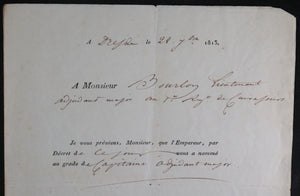 A Dresde le 28 7bre 1813.
A Monsieur Bourbon Lieutenant
adjudant major au 7e Régt de Cuirassiers
Je vous préviens, Monsieur, que l'Empereur, par
Décret de ce jour vous a nommé
au grade de Capitaine adjudant major